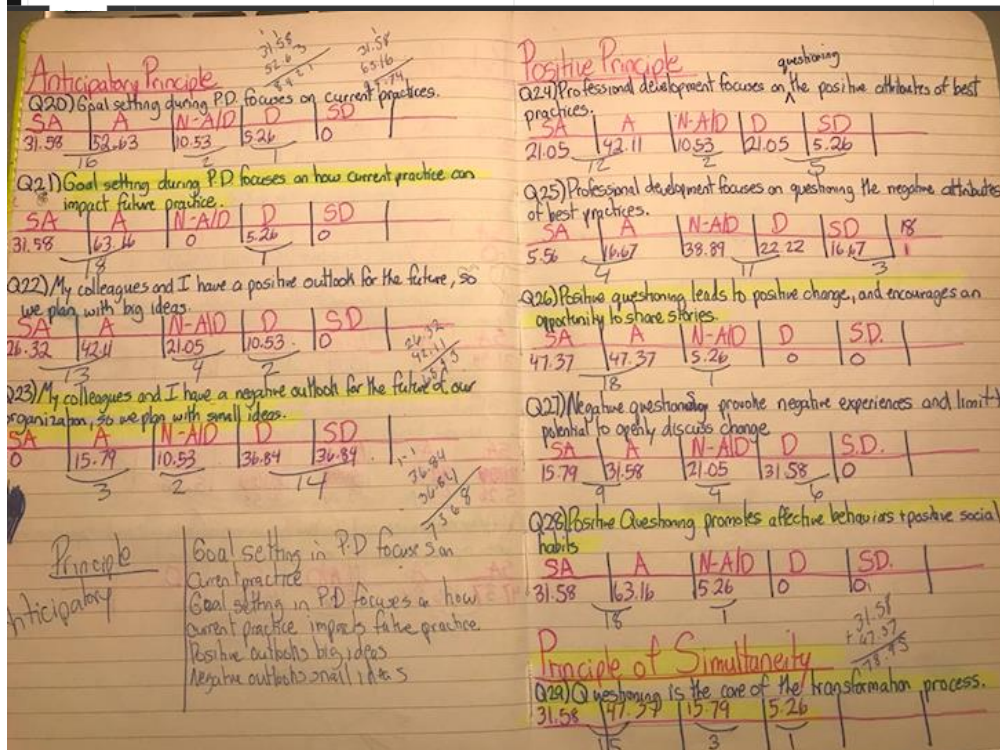 Anticipatory Principle
31.58
52.63
31.58
63.16
Q20) Goal setting during P.D. focuses on current practices.
SA A N-A/D D SD
31.58 52.63 10.53 5.26 0
16 2 1
Q21) Goal setting during P.D. focuses on how current practice can
impact future practice.
SA A N-A/D D SD
31.58 63.16 0 5.26 0
18 1
Q22) My colleagues and I have a positive outlook for the future, so
we plan with big ideas.
SA A N-A/D D SD
26.32 42.11 21.05 10.53 0
13 4 2
26.32
42.11
Q23) My colleagues and I have a negative outlook for the future of our
organization, so we plan with small ideas.
SA A N-A/D D SD
0 15.79 10.53 36.84 36.84
3 2 14
36.84
36.84
7368
Principle
Anticipatory
Goal setting in P.D focuses on
current practice
Goal setting in P.D focuses on how
current practice impacts future practice
Positive outlooks big ideas
Negative outlooks small ideas
Positive Principle
questioning
Q24) Professional development focuses on ^ the positive attributes of best
practices.
SA A N-A/D D SD
21.05 42.11 10.53 21.05 5.26
12 2 5
Q25) Professional development focuses on questioning the negative attributes
of best practices.
SA A N-A/D D SD 18
5.56 16.67 38.89 22.22 16.67 1
4 11 3
Q26) Positive questioning leads to positive change, and encourages an
opportunity to share stories.
SA A N-A/D D S.D.
47.37 47.37 5.26 0 0
18 1
Q27) Negative questioning provoke negative experiences and limit
potential to openly discuss change
SA A N-A/D D S.D.
15.79 31.58 21.05 31.58 0
9 4 6
Q28) Positive Questioning promotes affective behaviors + positive social
habits
SA A N-A/D D SD.
31.58 63.16 5.26 0 0
18 1
31.58
+ 47.37
78.95
Principle of Simultaneity
Q29) Questioning is the core of the transformation process.
31.58 47.37 15.79 5.26
15 3 1